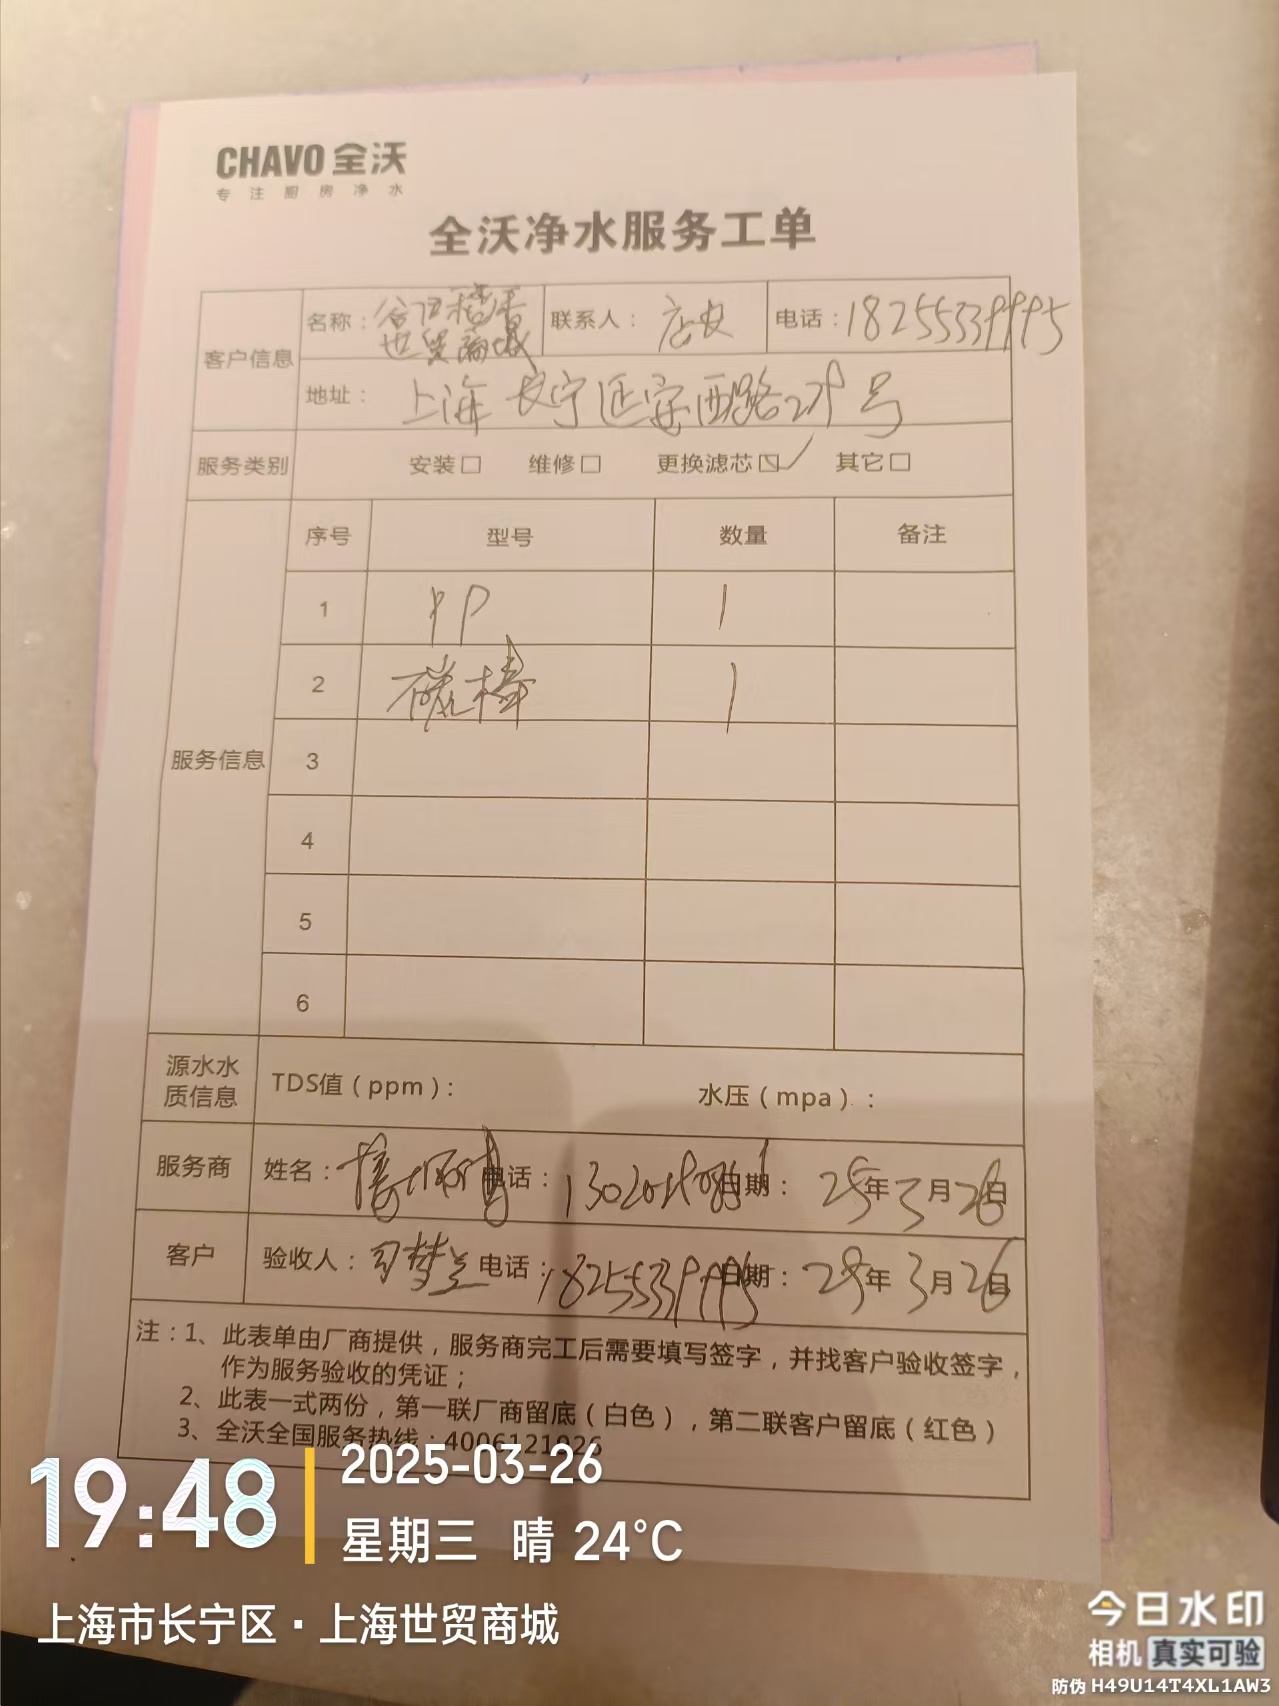 CHAVO 全沃
专注厨房净水
全沃净水服务工单
客户信息
名称:
世贸商城
联系人: 店长
电话: 18255339995
地址: 上海长宁延安西路2299号
服务类别 安装□ 维修□ 更换滤芯☑ 其它□
服务信息
序号 型号 数量 备注
1 PP 1
2 碳棒 1
3
4
5
6
源水水质信息 TDS值(ppm): 水压(mpa):
服务商 姓名: 电话: 日期: 25年3月26日
客户 验收人: 电话: 18255339995 日期: 25年3月26日
注:1、此表单由厂商提供,服务商完工后需要填写签字,并找客户验收签字,
作为服务验收的凭证;
2、此表一式两份,第一联厂商留底(白色),第二联客户留底(红色)
3、全沃全国服务热线:4006121026
19:48
2025-03-26
星期三 晴 24°C
上海市长宁区·上海世贸商城
今日水印
相机 真实可验
防伪 H49U14T4XL1AW3